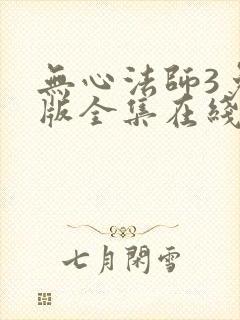 無心法師3
版全集在綫
七月閑雪